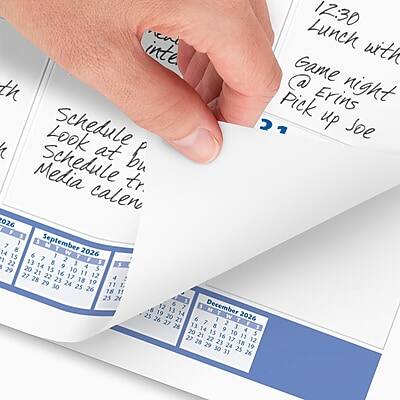 12:30
Lunch with
Game night
@ Erins
Pick up Joe
31
Schedule
Look at
Schedule
Media
September 2026
S M T W T F S
1 2 3 4 5
6 7 8 9 10 11 12
13 14 15 16 17 18 19
20 21 22 23 24 25 26
27 28 29 30
December 2026
S M T W T F S
1 2 3 4 5
6 7 8 9 10 11 12
13 14 15 16 17 18 19
20 21 22 23 24 25 26
27 28 29 30 31